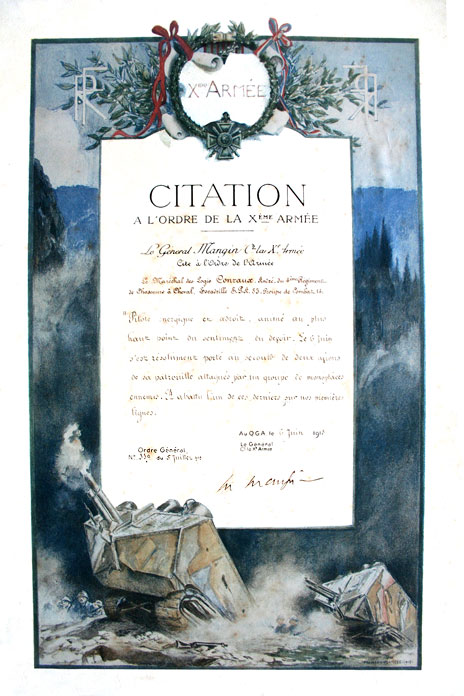 RF
Xème ARMÉE
RF
CITATION
A L'ORDRE DE LA XÈME ARMÉE
Le Général Mangin Ct la Xe Armée
Cite à l'Ordre de l'Armée
Le Maréchal des Logis Conraux, André, du Régiment
de Chasseurs à Cheval, Escadrille S.P.A. 53, Groupe de Combat
"Pilote énergique et adroit, animé au plus
haut point du sentiment du devoir. Le 6 juin
s'est résolument porté au secours de deux avions
de sa patrouille attaqués par un groupe de monoplaces
ennemis. A abattu l'un de ces derniers sur nos premières
lignes.
Au QGA. le Juin
Le Général
Ct la Xe Armée
Ordre Général
N° 330 du 5 Juillet
Mangin